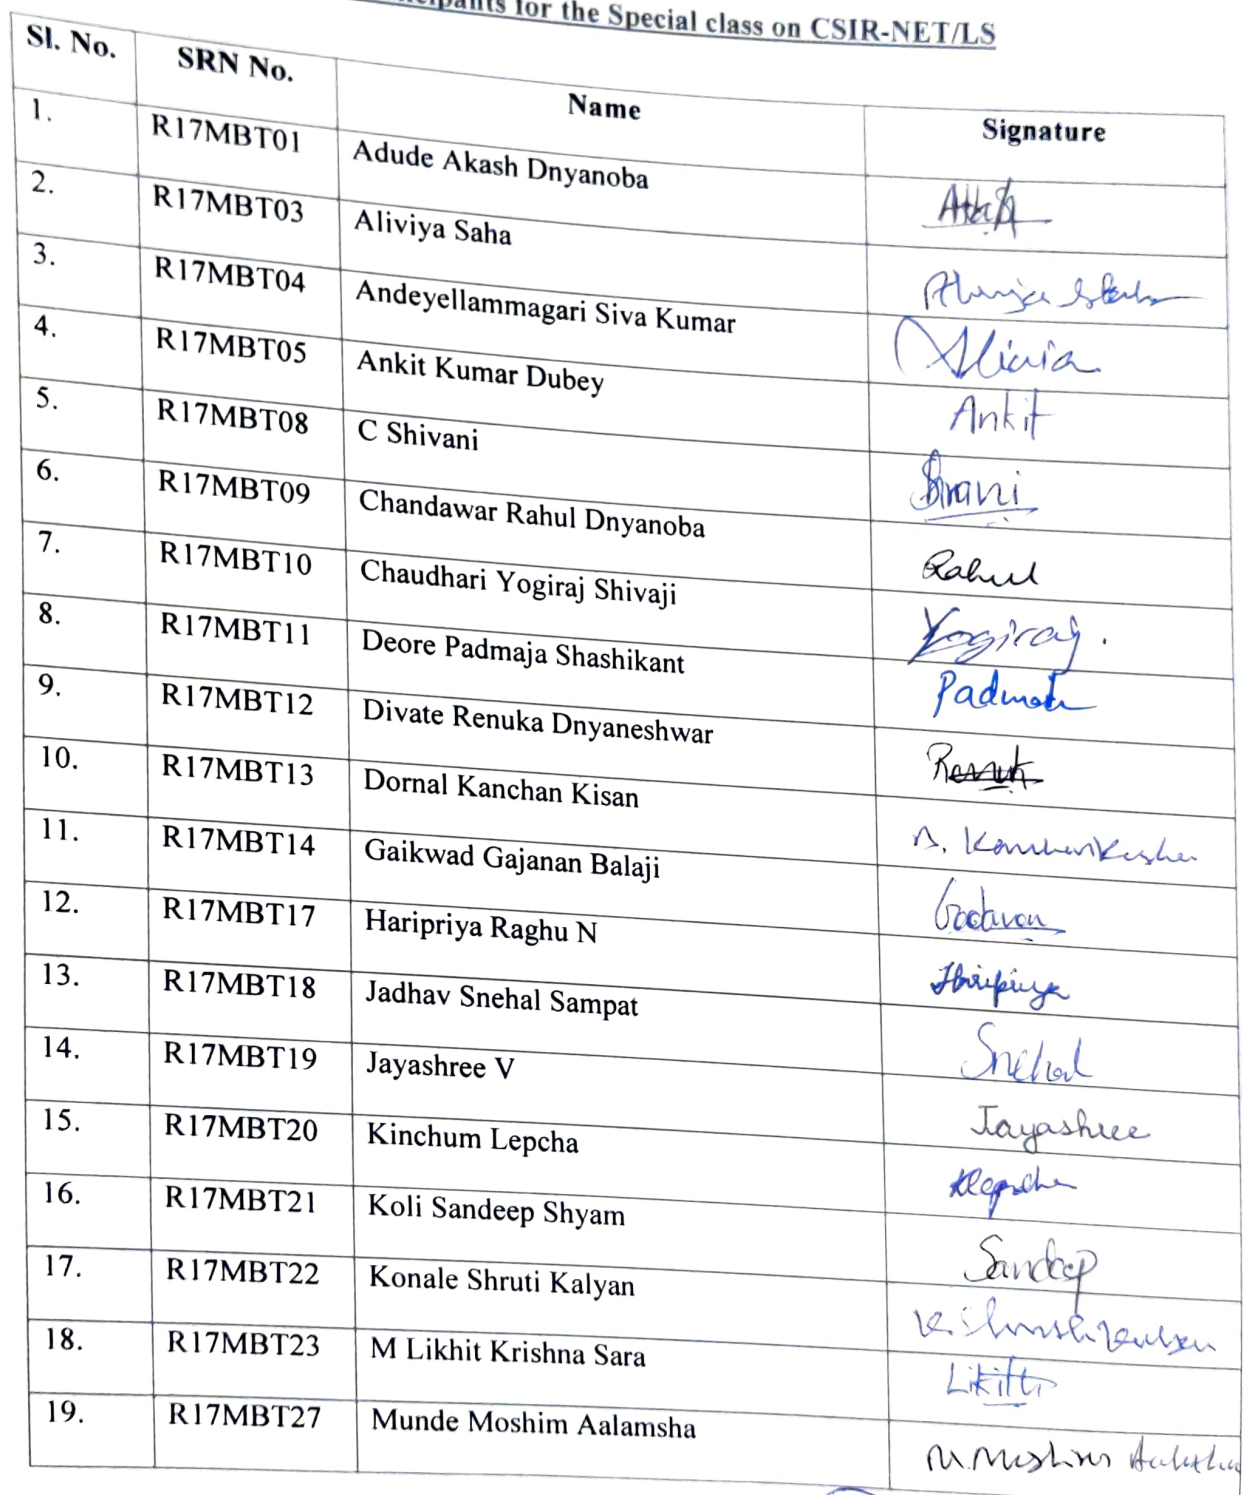 for the Special class on CSIR-NET/LS
Sl. No. SRN No. Name Signature
1. R17MBT01 Adude Akash Dnyanoba
2. R17MBT03 Aliviya Saha
3. R17MBT04 Andeyellammagari Siva Kumar
4. R17MBT05 Ankit Kumar Dubey Ankit
5. R17MBT08 C Shivani
6. R17MBT09 Chandawar Rahul Dnyanoba Rahul
7. R17MBT10 Chaudhari Yogiraj Shivaji Yogiraj.
8. R17MBT11 Deore Padmaja Shashikant
9. R17MBT12 Divate Renuka Dnyaneshwar
10. R17MBT13 Dornal Kanchan Kisan
11. R17MBT14 Gaikwad Gajanan Balaji
12. R17MBT17 Haripriya Raghu N Haripriya
13. R17MBT18 Jadhav Snehal Sampat Snehal
14. R17MBT19 Jayashree V Jayashree
15. R17MBT20 Kinchum Lepcha KLepcha
16. R17MBT21 Koli Sandeep Shyam Sandeep
17. R17MBT22 Konale Shruti Kalyan
18. R17MBT23 M Likhit Krishna Sara
19. R17MBT27 Munde Moshim Aalamsha